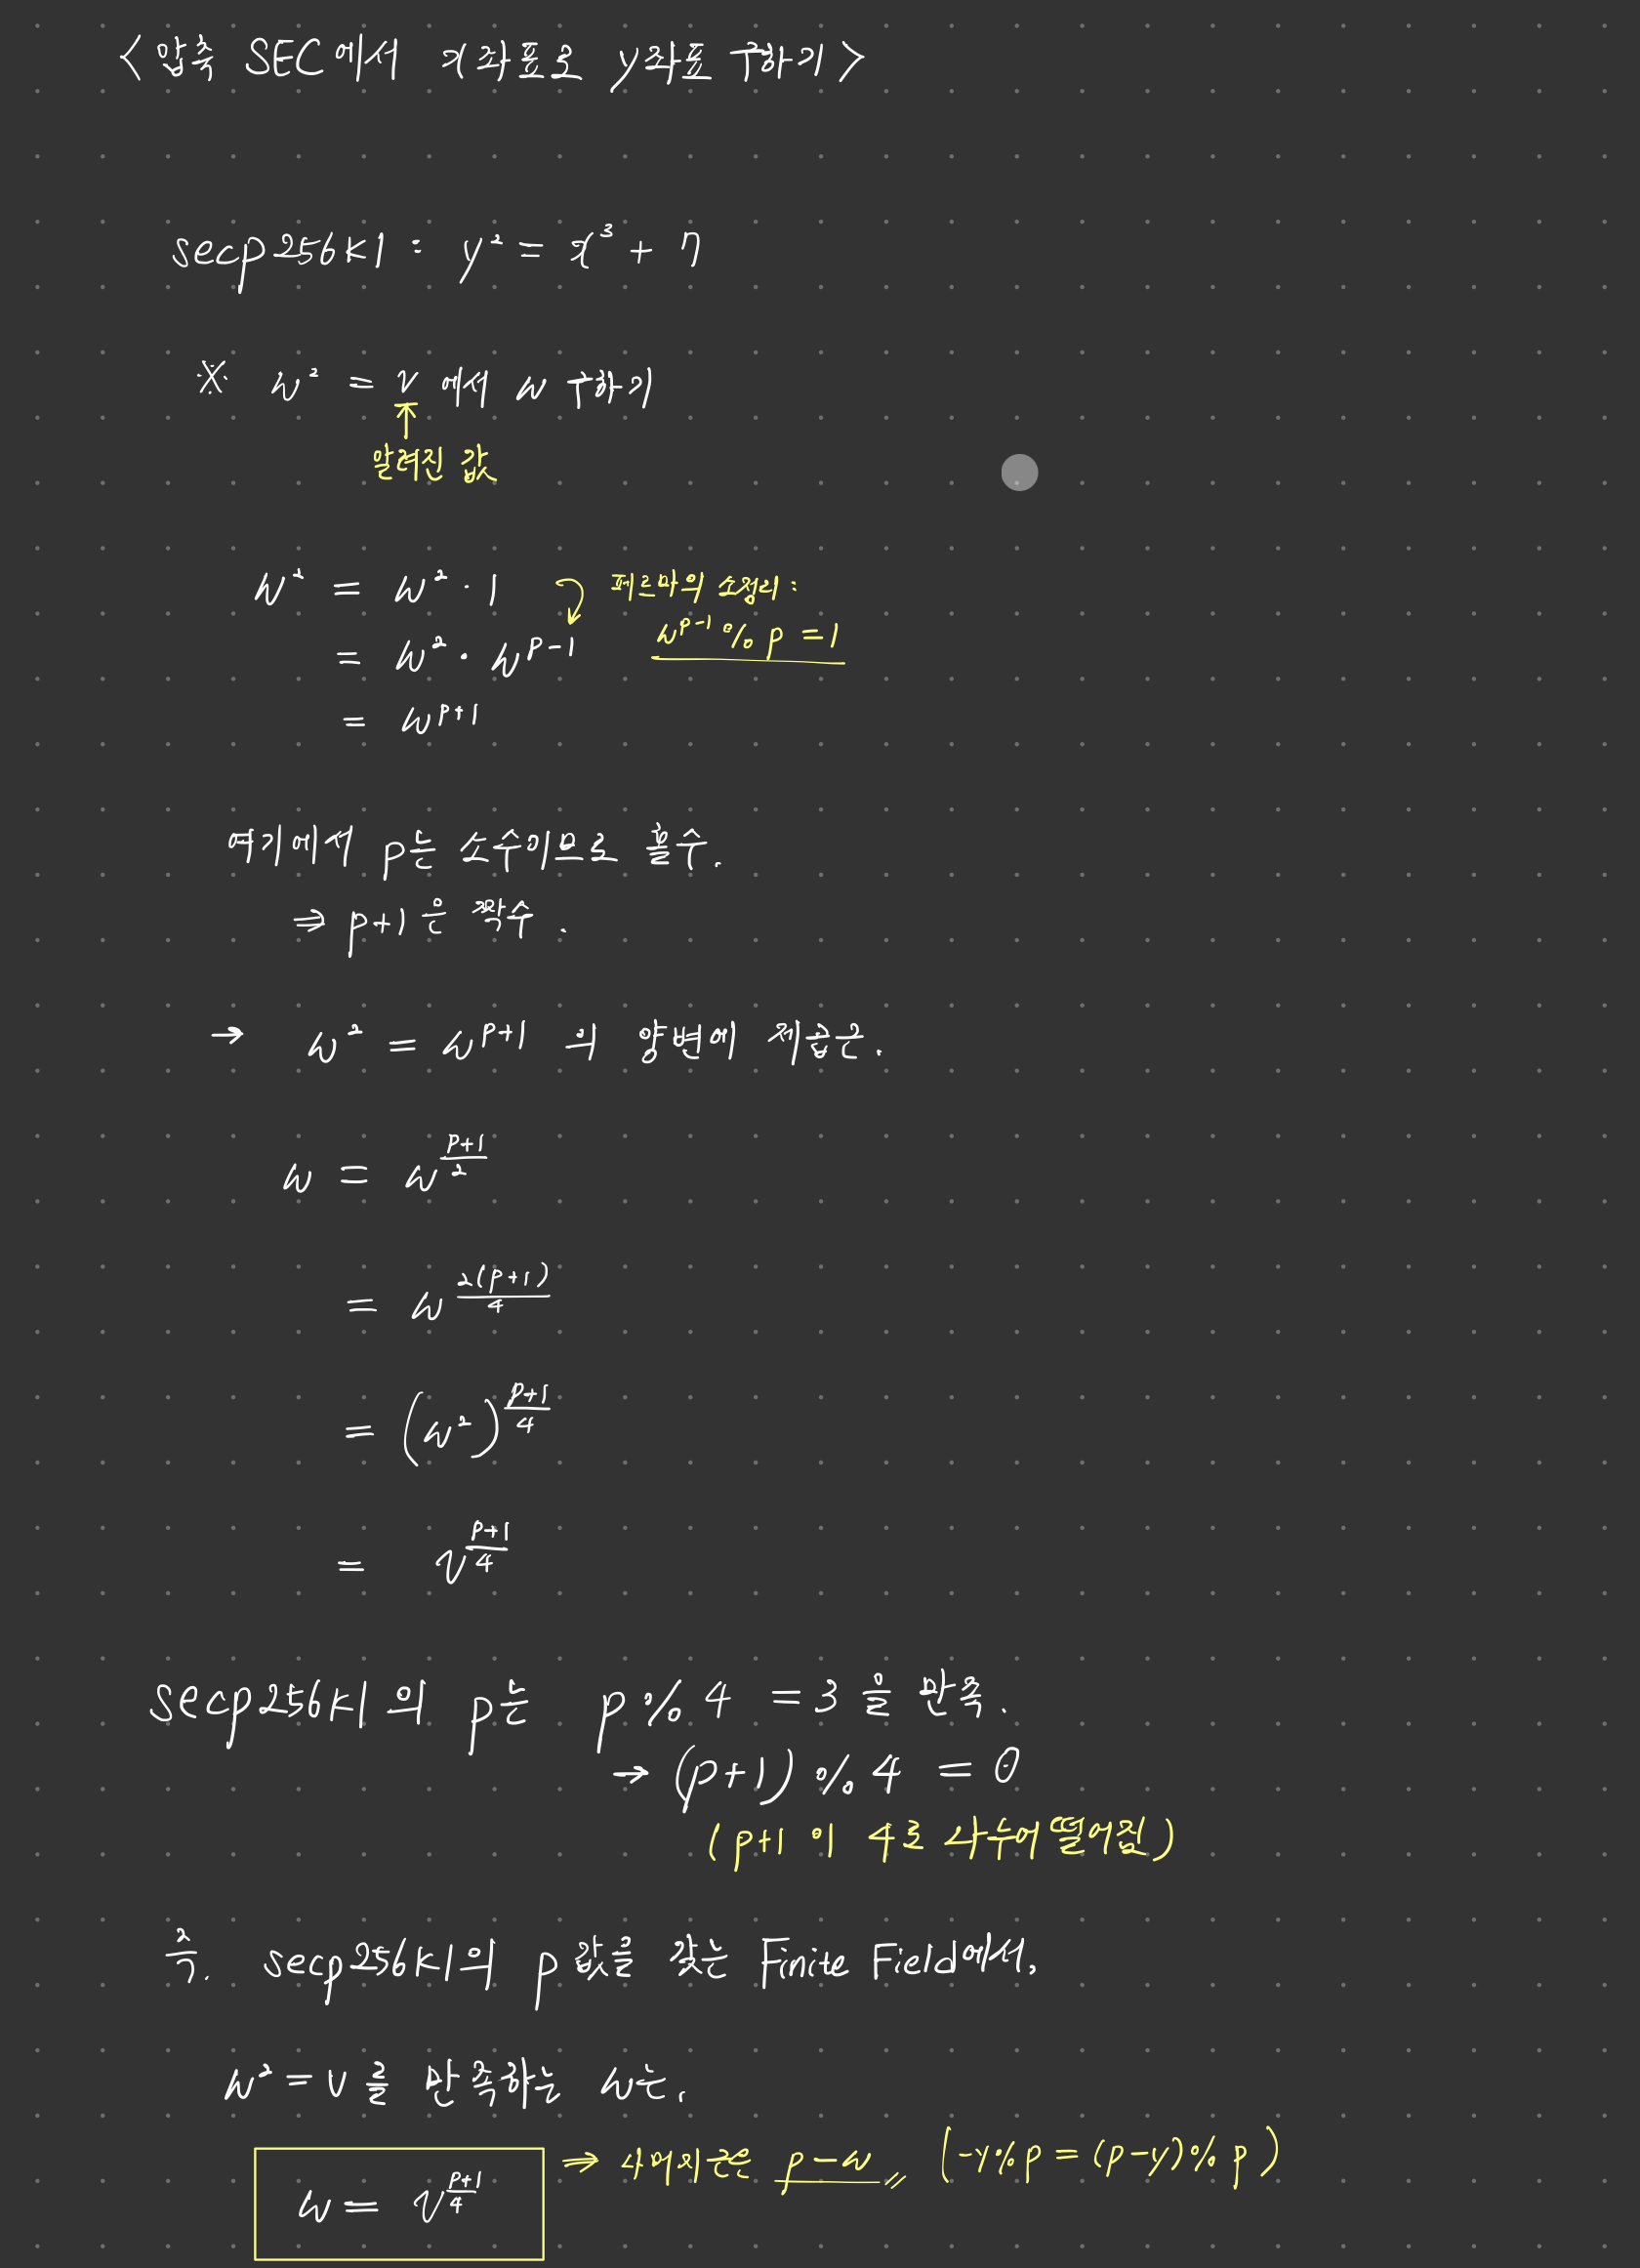 <압축 SEC에서 x좌표로 y좌표 구하기>
secp256k1 : y² = x³ + 7
※ w² = v 에서 w 구하기
↑
알려진 값
w² = w² · 1 페르마의 소정리 :
= w² · w^{p-1} w^{p-1} % p = 1
= w^{p+1}
여기에서 p는 소수이므로 홀수.
⇒ p+1 은 짝수 .
→ w² = w^{p+1} 의 양변에 제곱근.
w = w^{\frac{p+1}{2}}
= w^{\frac{2(p+1)}{4}}
= (w²)^{\frac{p+1}{4}}
= v^{\frac{p+1}{4}}
secp256k1 의 p는 p % 4 = 3 을 만족.
→ (p+1) % 4 = 0
(p+1 이 4로 나누어떨어짐)
즉. secp256k1의 p 값을 갖는 Finite Field에서,
w² = v 를 만족하는 w는,
w = v^{\frac{p+1}{4}} ⇒ 나머지근은 p-w (-y%p = (p-y)%p)